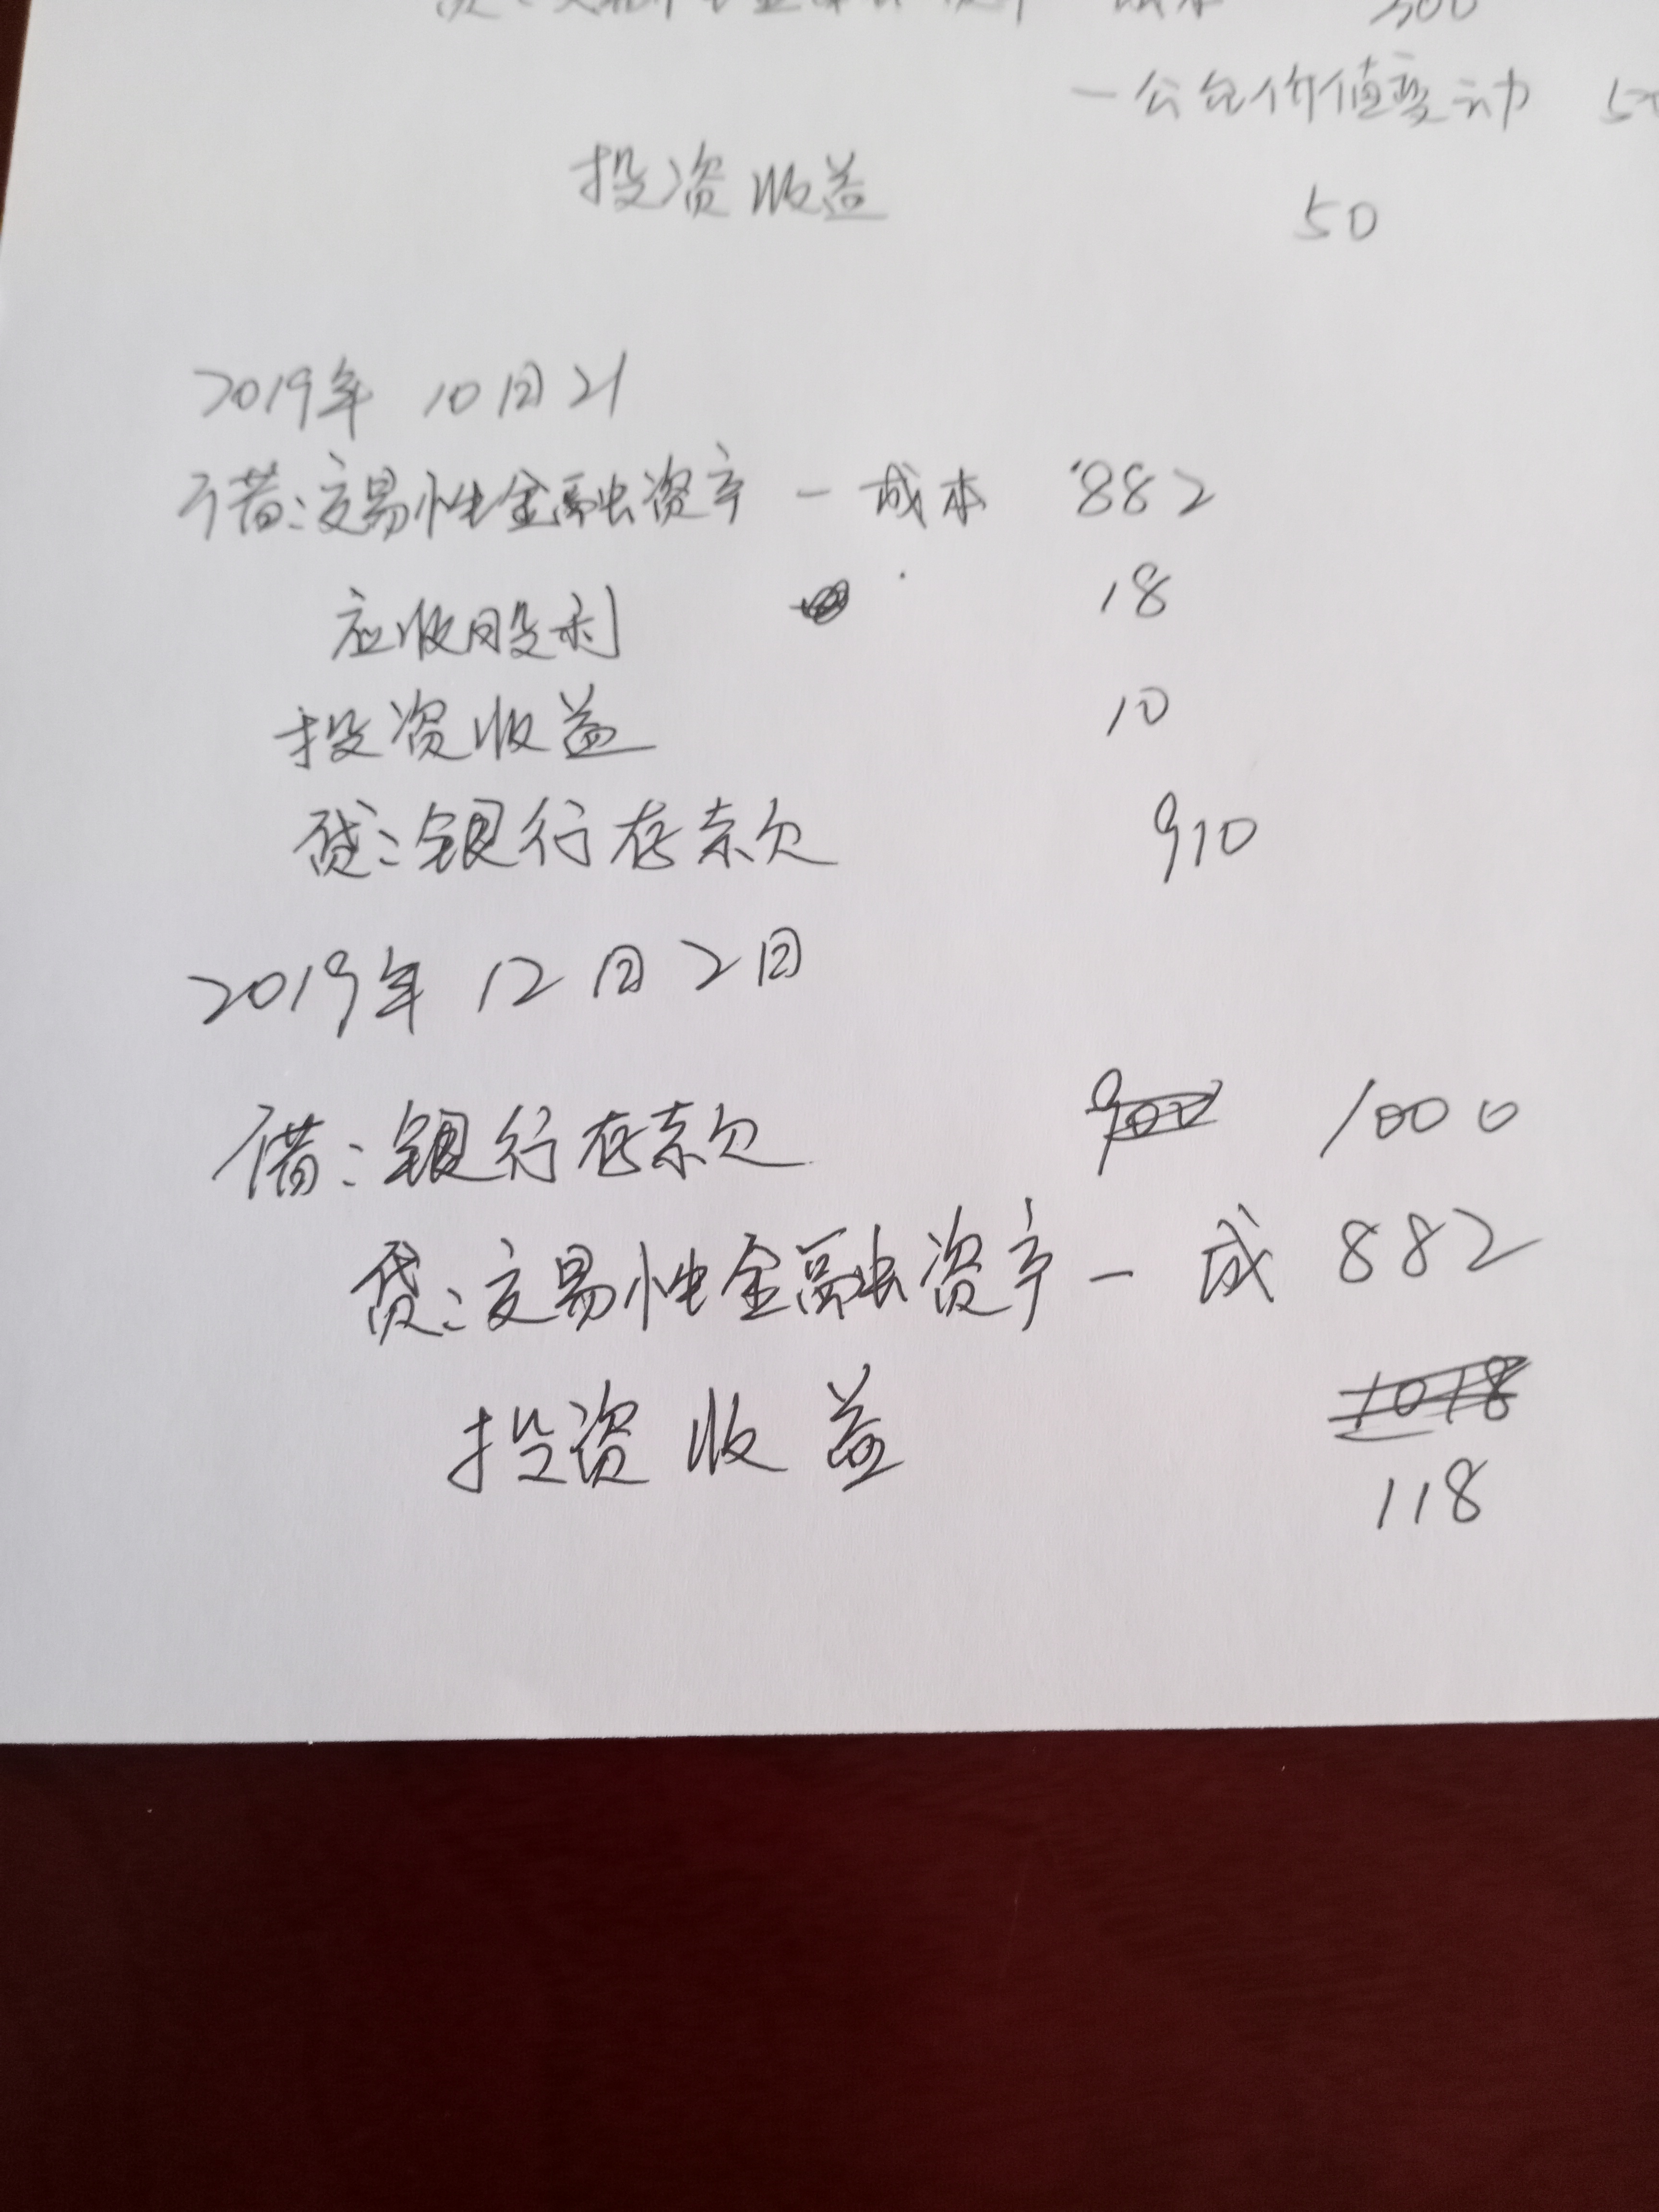 贷:交易性金融资产 成本 300
一公允价值变动 50
投资收益 50
2019年 10月21
借:交易性金融资产 一 成本 882
应收股利 18
投资收益 10
贷:银行存款 910
2019年 12月2日
借:银行存款 900 1000
贷:交易性金融资产一 成 882
投资收益 1018
118